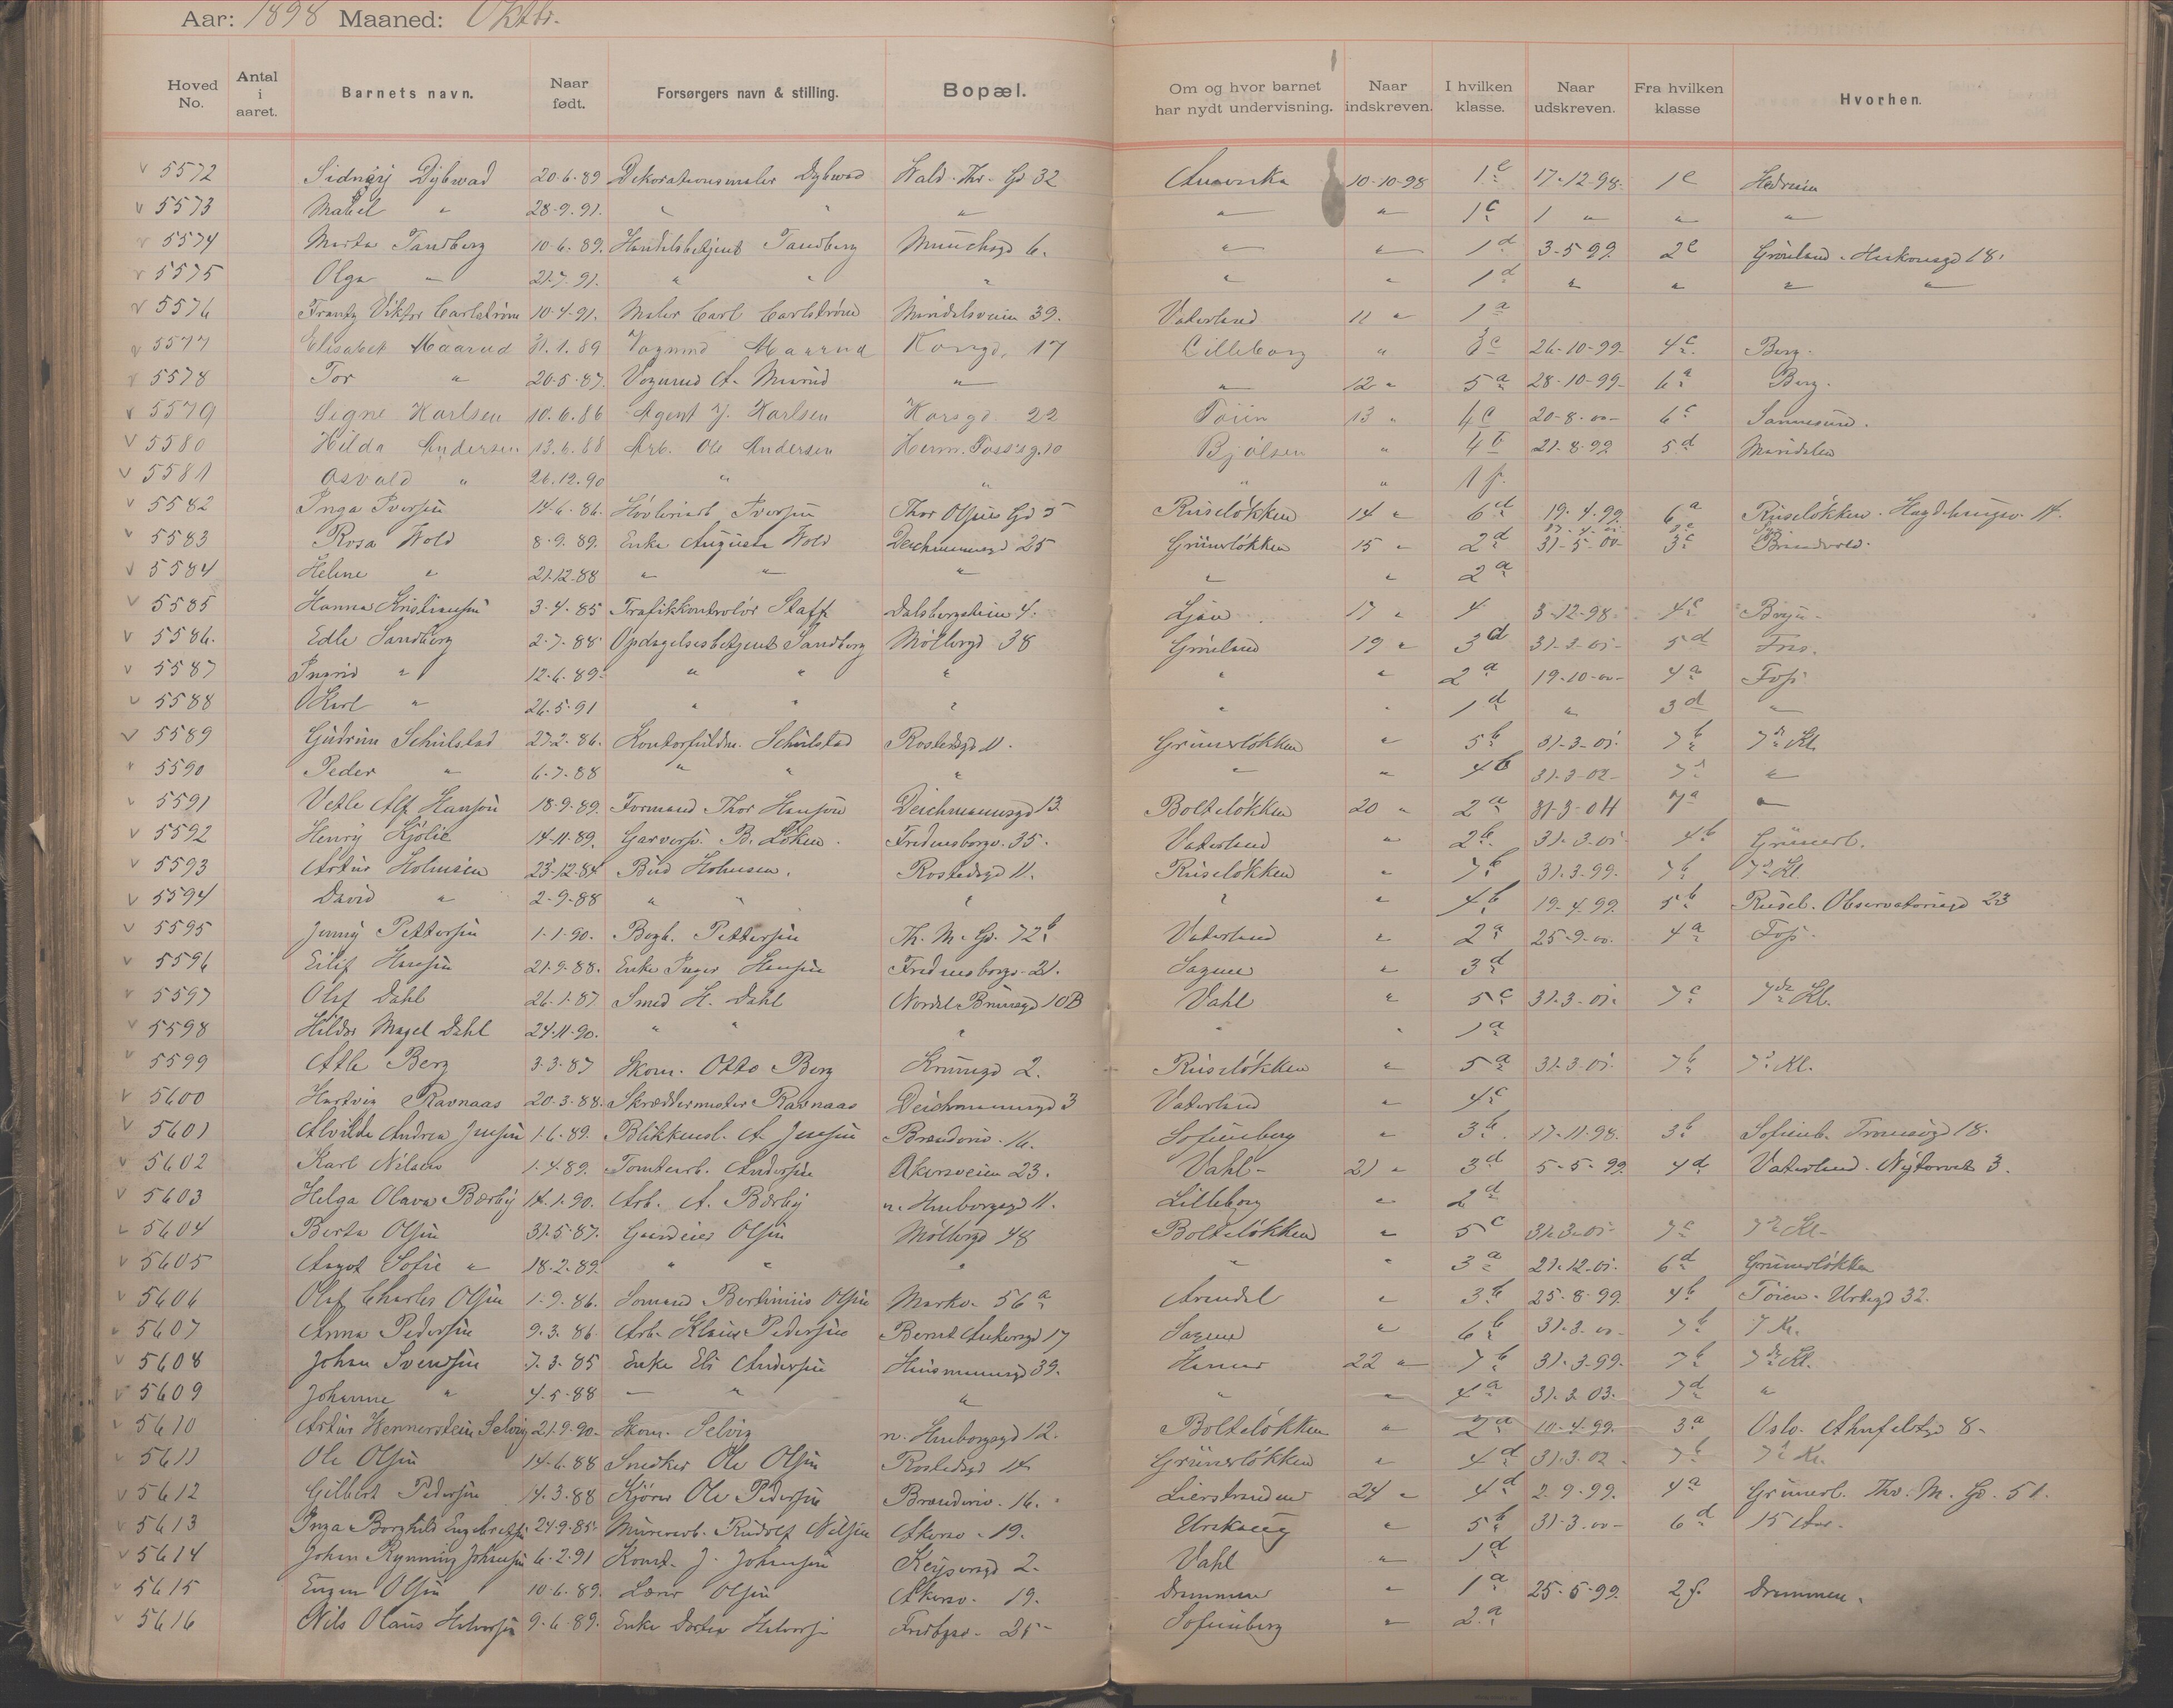 Aar: 1898 Maaned: Oktbr.
Hoved No. Antal i aaret. Barnets navn. Naar født. Forsørgers navn & stilling. Bopæl. Om og hvor barnet har nydt undervisning. Naar indskreven. I hvilken klasse. Naar udskreven. Fra hvilken klasse Hvorhen.
5572 Sidney Dybwad 20-6-89 Dekorationsmaler Dybwad Wald. Thr. Gd 32 Amerika 10-10-98 1 e 17-12-98 1e
5573 Mabel " 28-9-91. " " " " " 1 c 1 " " "
5574 Marta Tandberg 10-6-89. Handelsbetjent Tandberg Munchsgd 6. " " 1 d 3-5-99 2 e Grønland. Hakonsgd 18.
5575 Olga " 21-7-91. " " " " " 1 d " " " "
5576 Frantz Viktor Carlström 10-4-91. Maler Carl Carlström Maridalsveien 39. Vaterland 11 " 1 a
5577 Elisabet Maarud 31.1.89 Vognmd Maarud Korsgd. 17 Lilleborg " 3 c 26-10-99- 4 c Berg.
5578 Tor " 20-5-87. Vognmd A. Maarud " " 12 " 5 a 28-10-99- 6 a Berg.
5579 Signe Karlsen 10.6.86 Agent J. Karlsen Korsgd. 22 Töien 13 " 4 c 20-8-00- 6 c Sannesund.
5580 Hilda Andersen 13.6.88 Arb. Ole Andersen Herm. Fossg. 10 Bjölsen " 4 b 21-8-99 5 d Maridalen
5581 Osvald " 26.12.90 " " " " 1 f.
5582 Inga Iversen 14-6-86. Høvleriarb. Iversen Thor Olsens Gd 5 Ruseløkken 14 " 6 d 19-4-99 6 a Ruseløkken.
5583 Rosa Wold 8-9-89. Enke Augusta Wold Deichmannsgd 25 Grünerløkken 15 " 2 d 31-5-00- 3 c
5584 Helene " 21-12-88 " " " " " 2 a
5585 Hanna Kristiansen 3-4-85 Trafikkontrolør Staff Dalsbergstien 4. Ljan 17 " 4 3-12-98. 4 c
5586. Edle Sandberg 2-7-88 Opdagelsesbetjent Sandberg Møllergd 38 Grønland 19 " 3 d 31-3-01- 5 d
5587 Ingrid " 12-6-89. " " " " " 2 a 19-10-00- 4 a Foss
5588 Karl " 26-5-91 " " " " " 1 d " 3 d "
5589 Gudrun Schulstad 27-2-86. Kontorfuldm. Schulstad Rostedsgd 11. Grünerløkken " 5 b 31-3-01. 7 b 7de Kl.
5590 Peder " 6-7-88 " " " " " 4 b 31-3-02- 7 "
5591 Vetle Alf Hansen 18-9-89. Formand Thor Hansen Deichmannsgd 13. Bolteløkken 20 " 2 a 31-3-04 7 a "
5592 Henry Kjølie 14-11-89. Garversv. B. Løken. Fredensborgv. 35. Vaterland " 2 b. 31-3-01. 4 b Grünerl.
5593 Artur Holmsen 23-12-84 Bud Holmsen. Rostedsgd 11. Ruseløkken " 7 b 31-3-99. 7 b 7de Kl
5594 David " 2-9-88 " " " " " 4 b 19-4-99. 5 b Rusel. Observatoriegd 23
5595 Jenny Pettersen 1-1-90. Bogh. Pettersen Th. M. Gd. 72 b Vaterland " 2 a 25-9-00. 4 a Foss.
5596 Eilif Hansen 21-9-88. Enke Inger Hansen Fredensborgv. 21. Sagene " 3 d
5597 Olaf Dahl 26-1-87 Smed H. Dahl Nordal Brunsgd 10B Vahl " 5 c 31-3-01. 7 c 7de Kl.
5598 Hildur Magel Dahl 24-11-90. " " " " " 1 a
5599 Atle Berg 3-3-87 Skom. Otto Berg Krumgd 2. Ruseløkken " 5 a 31-3-01. 7 b 7. Kl.
5600 Hartvig Ravnaas 20-3-88. Skræddermester Ravnaas Deichmannsgd 3 Vaterland " 4 c
5601 Alvilde Andrea Jensen 1-6-89. Blikkensl. A. Jensen Brenneriv. 16. Sofienberg " 3 b. 17-11-98. 3 b Sofienb. Tromsøgd 18.
5602 Karl Nilsen 1-4-89. Tomtearb. Andersen Akersveien 23. Vahl- 21 " 3 d 5-5-99. 4 d Vaterland. Nytorvet 3.
5603 Helga Olava Bærby 14-1-90. Arb. A. Bærby n. Hmborgsgd 11. Lilleborg " 2 d
5604 Berta Olsen 31-5-87. Olsen Møllergd 48 Bolteløkken " 5 c 31-3-01- 7 c 7de Kl-
5605 Aagot Sofie " 18-2-89. " " " " " 3 a 21-12-01. 6 d Grünerløkken
5606 Olaf Charles Olsen 1-9-86. Sømand Bertinius Olsen Markv. 56 a Arendal " 3 b 25-8-99. 4 b Töien. Urtegd 32.
5607 Anna Pedersen 9-3-86 Arb. Klaus Pedersen Bernt Ankersgd 17 Sagene " 6 b 31-3-00- 7 b 7 Kl.
5608 Johan Svendsen 7-3-85 Enke Eli Andersen Hausmannsgd 39. Hamar 22 " 7 b 31-3-99. 7 b 7de Kl.
5609 Johanne " 4-5-88 " " " " " 4 a 31-3-03. 7 d "
5610 Artur Wennerstein Selvig 21-9-90- Skom. Selvig n. Hmborgsgd 12. Bolteløkken " 2 a 10-4-99. 3 a Oslo. 8-
5611 Ole Olsen 14-6-88 Snedker Ole Olsen Rostedsgd 14 Grünerløkken " 4 d 31-3-02 7 b 7 Kl.
5612 Gilbert Pedersen 14-3-88 Kjører Ole Pedersen Brenneriv. 16. Lierstranden 24 " 4 d 2-9-99. 4 a Grünerl. Thv. M. Gd. 51.
5613 Inga Borghild Engebretsen 24-9-85. Murerarb. Rudolf Nilsen Akersv. 19. Urskoug " 5 b 31-3-00- 6 d 15 Aar.
5614 Johan Rynning Johansen 6-2-91 J. Johansen Keysersgd 2. Vahl " 1 d
5615 Eugen Olsen 10-6-89. Lærer Olsen Akersv. 19. Drammen " 1 a 25-5-99. 2 f. Drammen.
5616 Nils Olaus Halvorsen 9-6-89. Enke Dortea Halvorsen Fredbgsv. 25- Sofienberg " 2 a